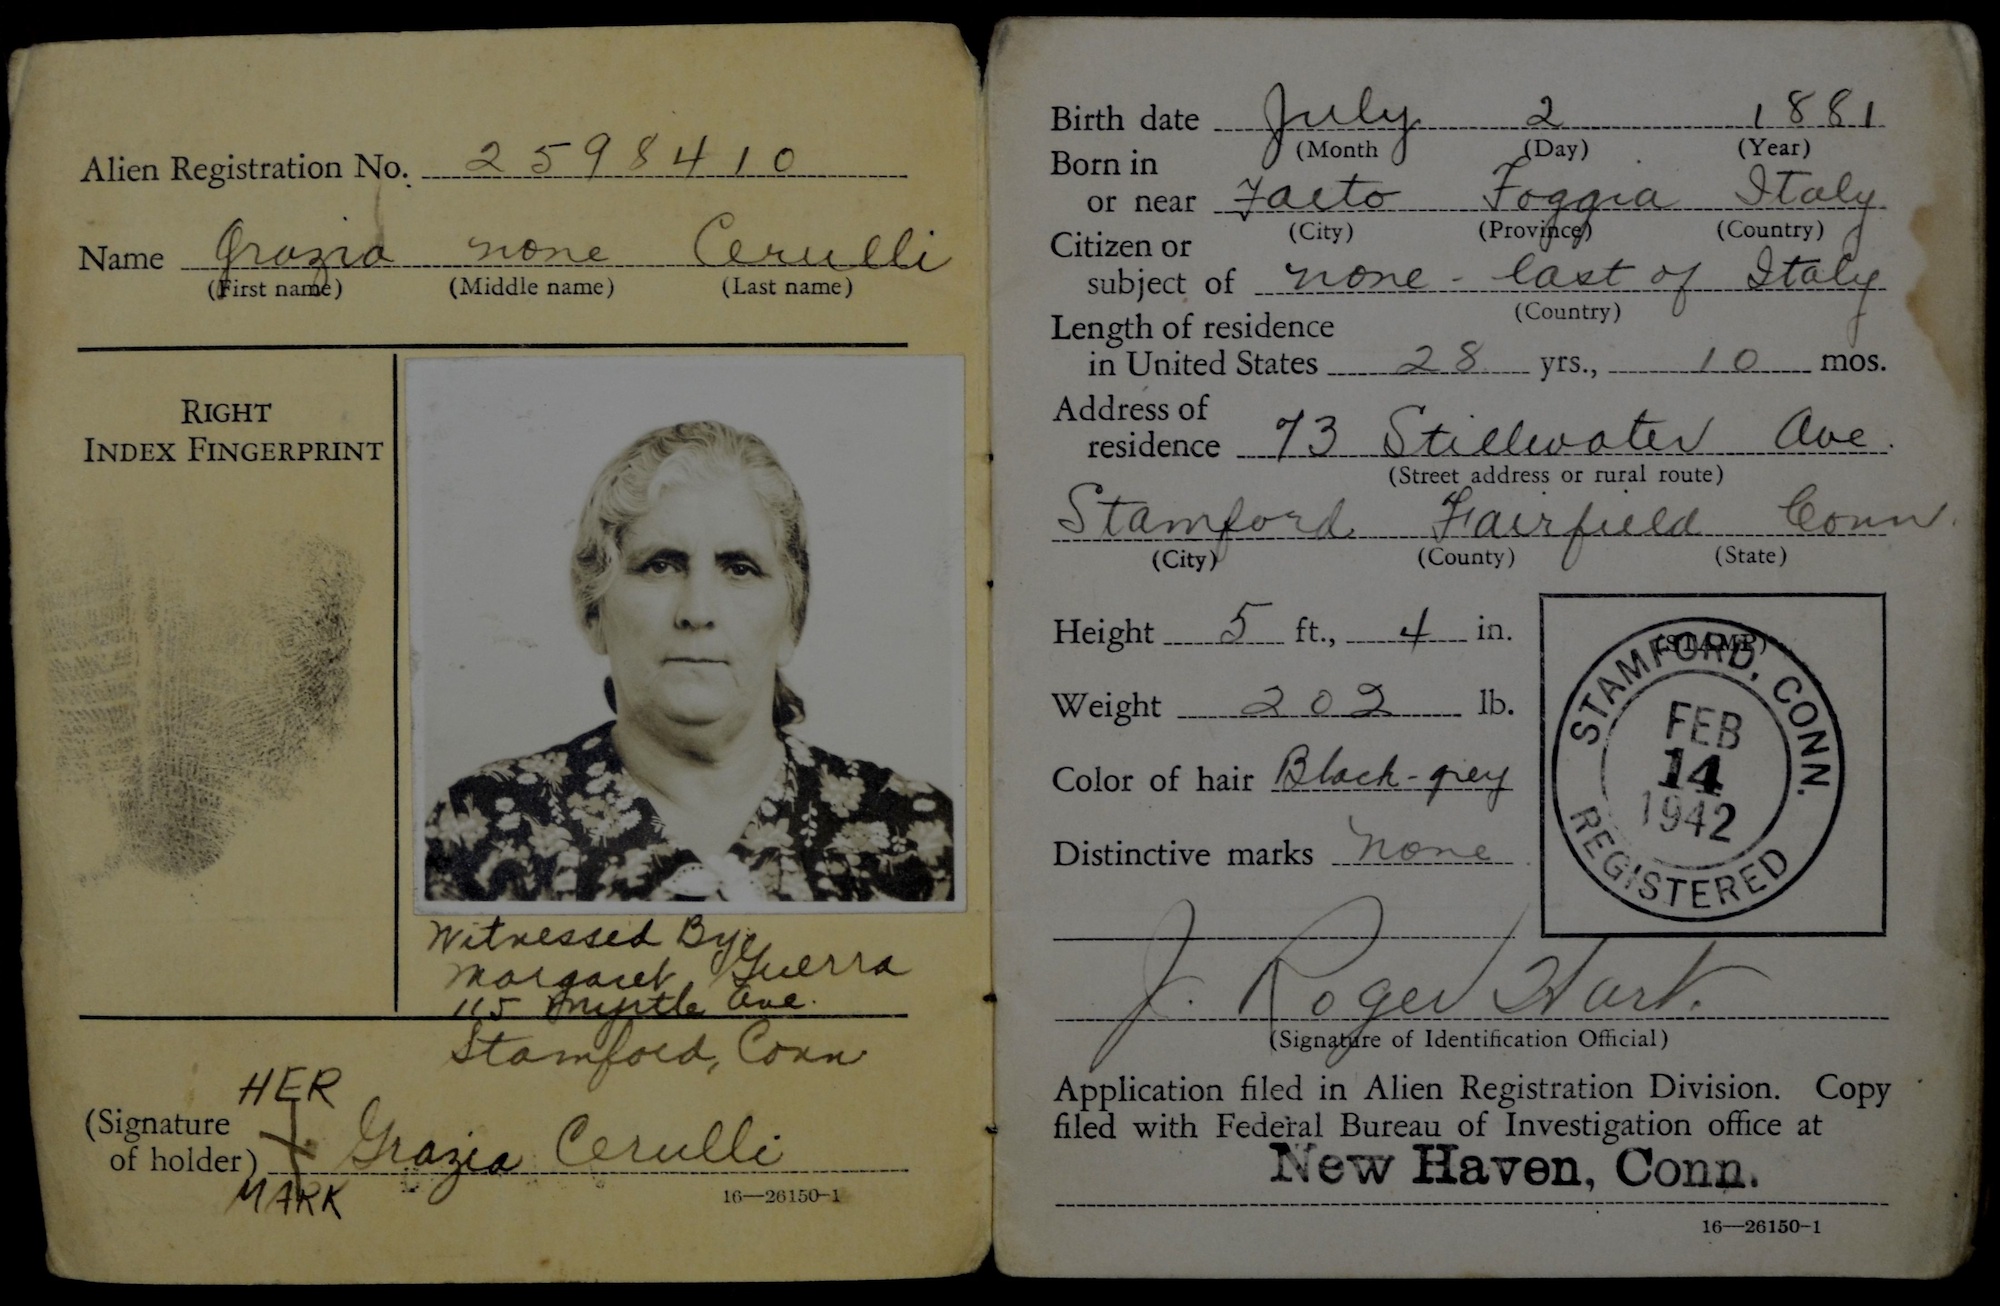 Alien Registration No. 2598410
Name Grazia none Cerulli
(First name) (Middle name) (Last name)
RIGHT
INDEX FINGERPRINT
Witnessed By
Margaret Guerra
115 Myrtle Ave.
Stamford, Conn
HER
(Signature
of holder) Grazia Cerulli
MARK
16—26150-1
Birth date July 2 1881
(Month (Day) (Year)
Born in
or near Faeto Foggia Italy
(City) (Province) (Country)
Citizen or
subject of none - last of Italy
(Country)
Length of residence
in United States 28 yrs., 10 mos.
Address of
residence 73 Stillwater Ave.
(Street address or rural route)
Stamford Fairfield Conn.
(City) (County) (State)
Height 5 ft., 4 in.
Weight 202 lb.
Color of hair Black-grey
Distinctive marks none
(STAMP)
STAMFORD, CONN.
FEB
14
1942
REGISTERED
J. Roger Hart.
(Signature of Identification Official)
Application filed in Alien Registration Division. Copy
filed with Federal Bureau of Investigation office at
New Haven, Conn.
16—26150-1